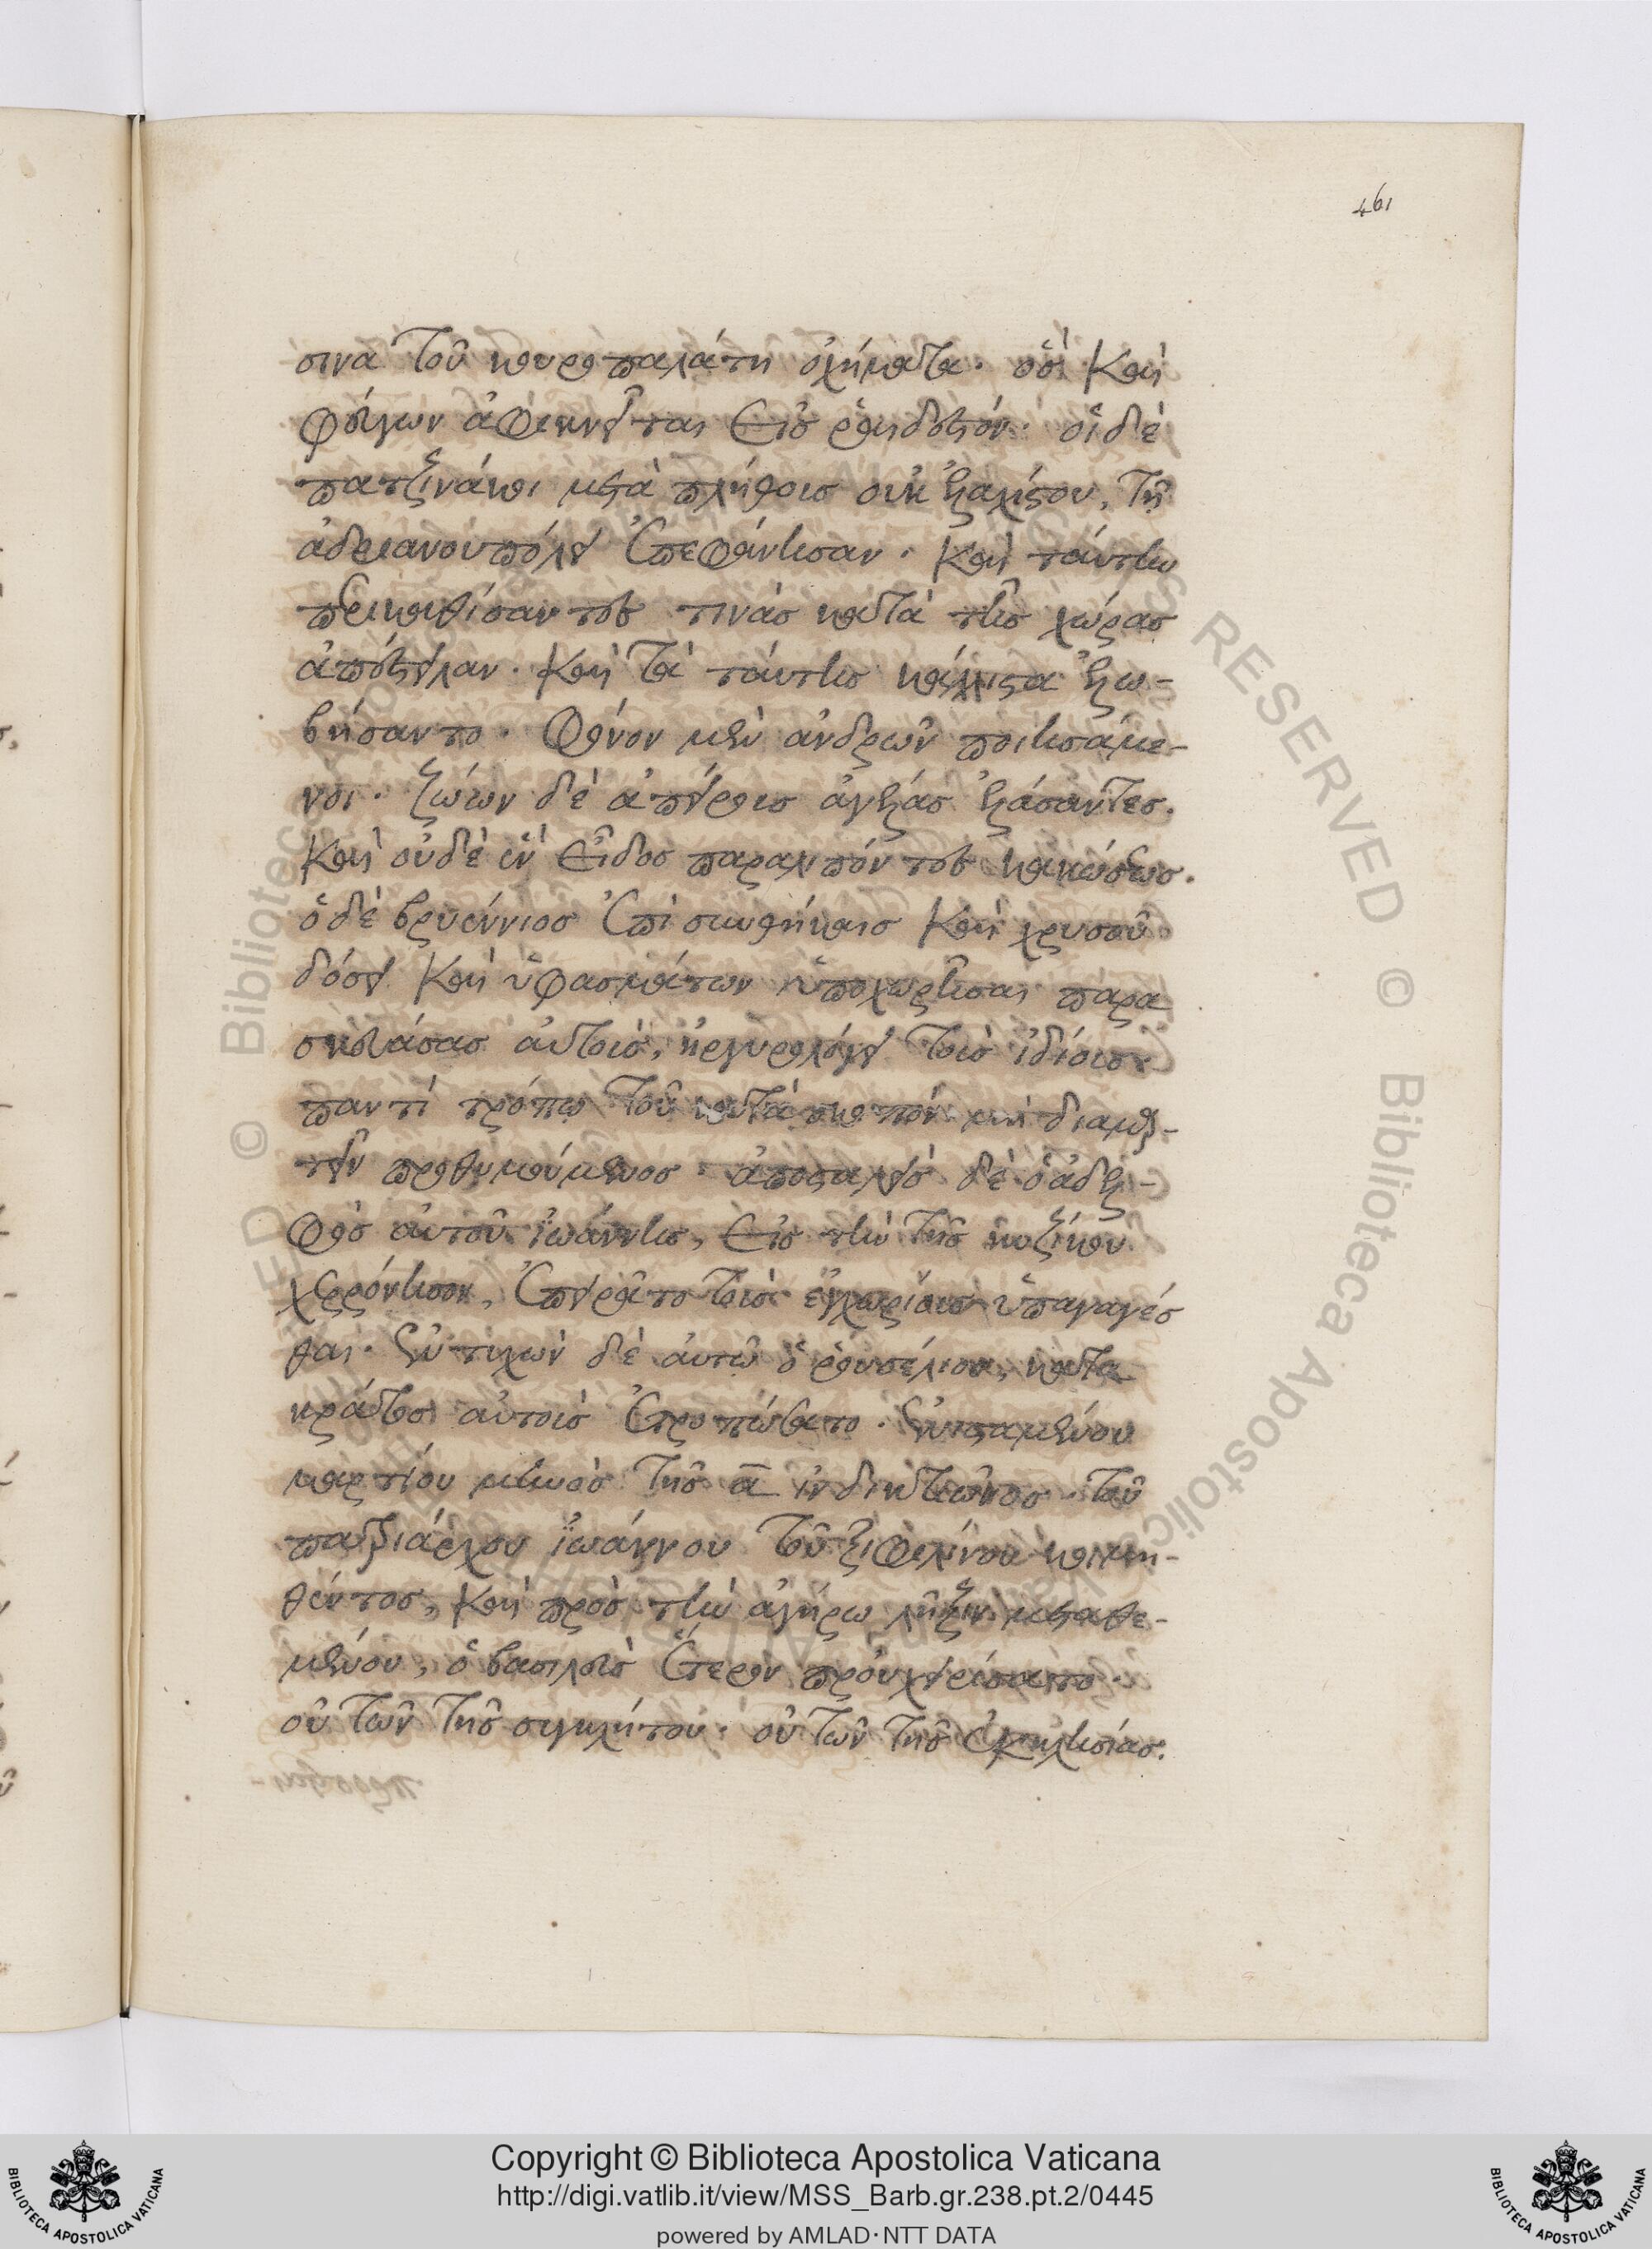 461
σινα τοῦ κουροπαλάτη ὀχήματα. ὃς καὶ
φεύγων ἀφικνεῖται εἰς ῥαιδεστόν. οἱ δὲ
πατζινάκοι μετὰ πλήθους οὐκ ἐξαλήστου, τῇ
ἀδριανουπόλει ἐπεφάνησαν. καὶ ταύτην
περικαθίσαντες τινὰς κατὰ τῆς χώρας
ἀπέστειλαν. καὶ τὰ ταύτης κάλλιστα ἐλω-
βήσαντο. φόνον μὲν ἀνδρῶν ποιησάμε-
νοι. ζώων δὲ ἀπείρους ἀγέλας ἐλάσαντες.
καὶ οὐδὲ ἓν εἶδος παραλιπόντες κακώσεως.
ὁ δὲ βρυέννιος ἐπὶ συνθήκαις καὶ χρυσοῦ
δόσει καὶ ὑφασμάτων ὑποχωρῆσαι παρα
σκευάσας αὐτοὺς, ἠργυρολόγει τοῖς ἰδίοις
παντὶ τρόπῳ τοῦ κατὰ σκοπὸν μὴ διαμαρ-
τεῖν προθυμούμενος. ἀποσταλεὶς δὲ ὁ ἀδελ-
φὸς αὐτοῦ ἰωάννης, εἰς τὴν τῆς κυζίκου
χερρόνησον, ἐπειρᾶτο τοὺς ἐγχωρίους ὑπαγαγέσ
θαι. ἐντυχὼν δὲ αὐτῷ ὁ ῥουσέλιος, κατὰ
κράτος αὐτοὺς ἐτροπώσατο. ἐνισταμένου
μαρτίου μηνὸς τῆς ᾱ ἰνδικτιῶνος. τοῦ
πατριάρχου ἰωάννου τοῦ ξιφιλίνου κοιμη-
θέντος, καὶ πρὸς τὴν ἀγήρω λῆξιν μεταθε-
μένου, ὁ βασιλεὺς ἕτερον προυχειρίσατο.
οὐ τῶν τῆς συγκλήτου. οὐ τῶν τῆς ἐκκλησίας.
Copyright © Biblioteca Apostolica Vaticana
http://digi.vatlib.it/view/MSS_Barb.gr.238.pt.2/0445
powered by AMLAD·NTT DATA
BIBLIOTECA APOSTOLICA VATICANA
BIBLIOTECA APOSTOLICA VATICANA